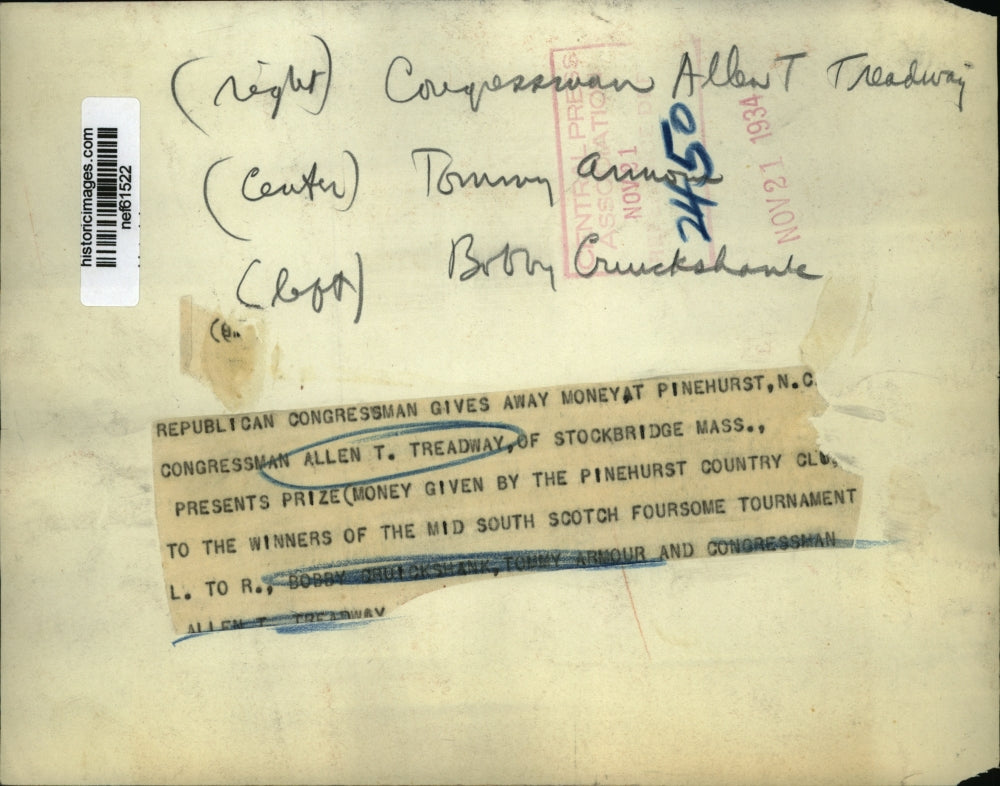 (right) Congressman Allen T Treadway
CENTRAL PRESS
ASSOCIATION
NOV 21
NOV 21 1934
2450
historicimages.com
nef61522
(center) Tommy Armour
(left) Bobby Cruickshank
REPUBLICAN CONGRESSMAN GIVES AWAY MONEY AT PINEHURST, N.C.
CONGRESSMAN ALLEN T. TREADWAY, OF STOCKBRIDGE MASS.,
PRESENTS PRIZE(MONEY GIVEN BY THE PINEHURST COUNTRY CLU
TO THE WINNERS OF THE MID SOUTH SCOTCH FOURSOME TOURNAMENT
L. TO R., BOBBY CRUICKSHANK, TOMMY ARMOUR AND CONGRESSMAN
ALLEN T. TREADWAY